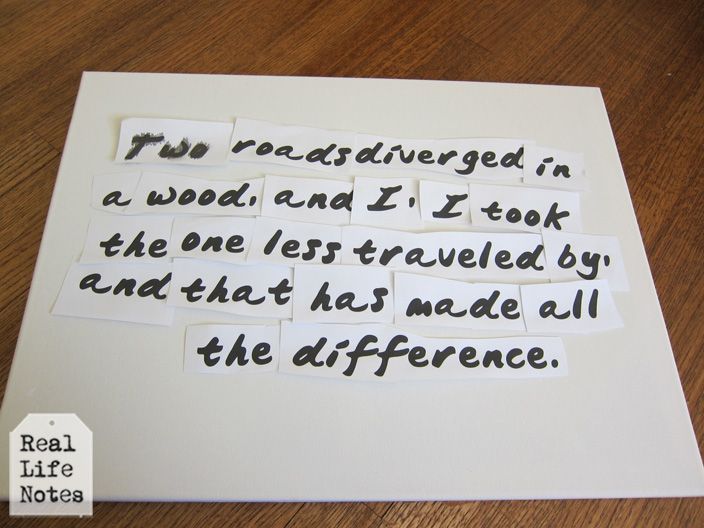 Two roads diverged in
a wood, and I, I took
the one less traveled by,
and that has made all
the difference.
Real
Life
Notes